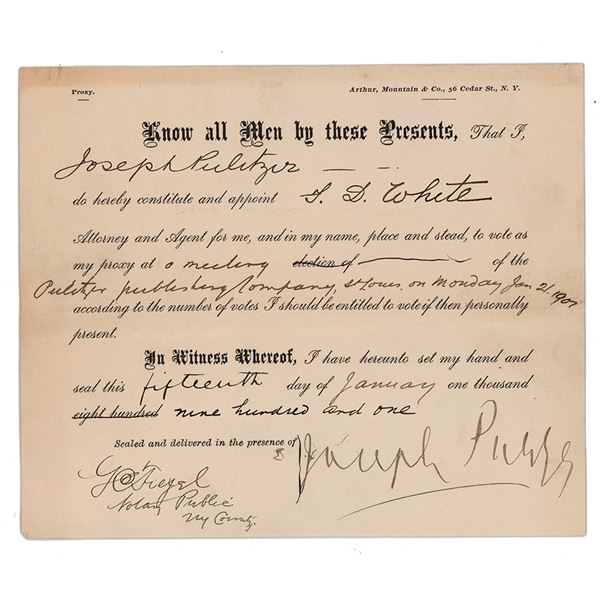 Proxy.
Arthur, Mountain & Co., 56 Cedar St., N. Y.
Know all Men by these Presents, That I,
Joseph Pulitzer
do hereby constitute and appoint T. D. White
Attorney and Agent for me, and in my name, place and stead, to vote as
my proxy at a meeting election of of the
Pulitzer publishing Company, St Louis, on Monday Jan 21. 1901
according to the number of votes I should be entitled to vote if then personally
present.
In Witness Whereof, I have hereunto set my hand and
seal this fifteenth day of January one thousand
eight hundred nine hundred and one
Sealed and delivered in the presence of
Joseph Pulitzer
Notary Public
NY County.